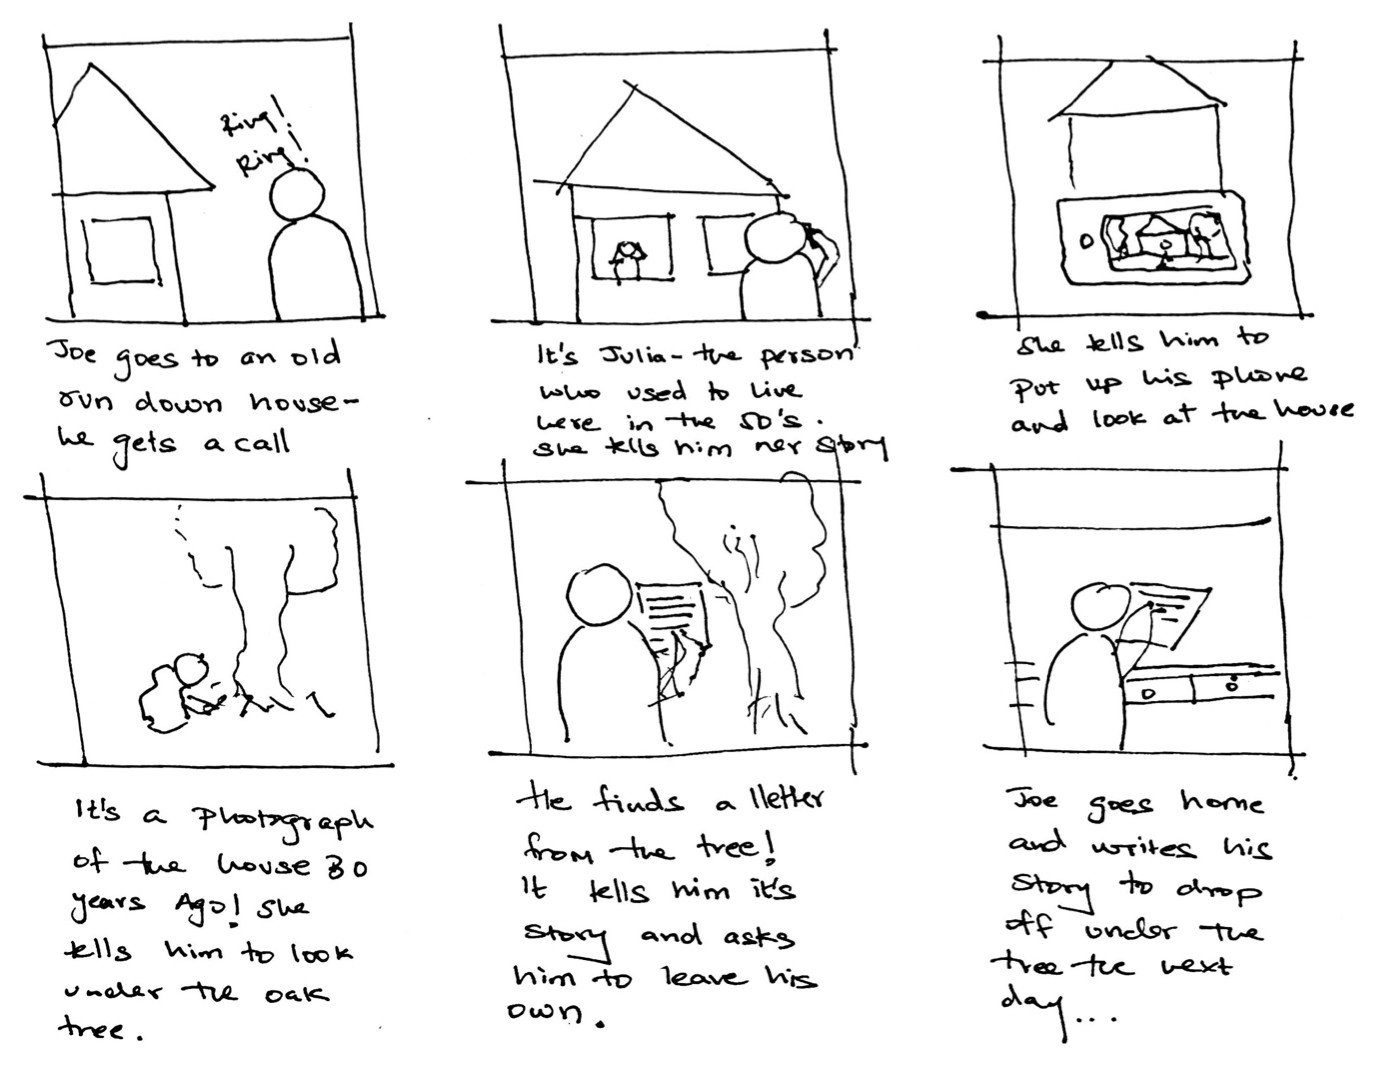 Ring!
Ring!
Joe goes to an old
run down house-
he gets a call
It's Julia - the person
who used to live
here in the 50's.
she tells him her story
She tells him to
put up his phone
and look at the house
It's a photograph
of the house 30
years Ago! She
tells him to look
under the oak
tree.
He finds a lletter
from the tree!
It tells him it's
story and asks
him to leave his
own.
Joe goes home
and writes his
story to drop
off under the
tree the next
day...